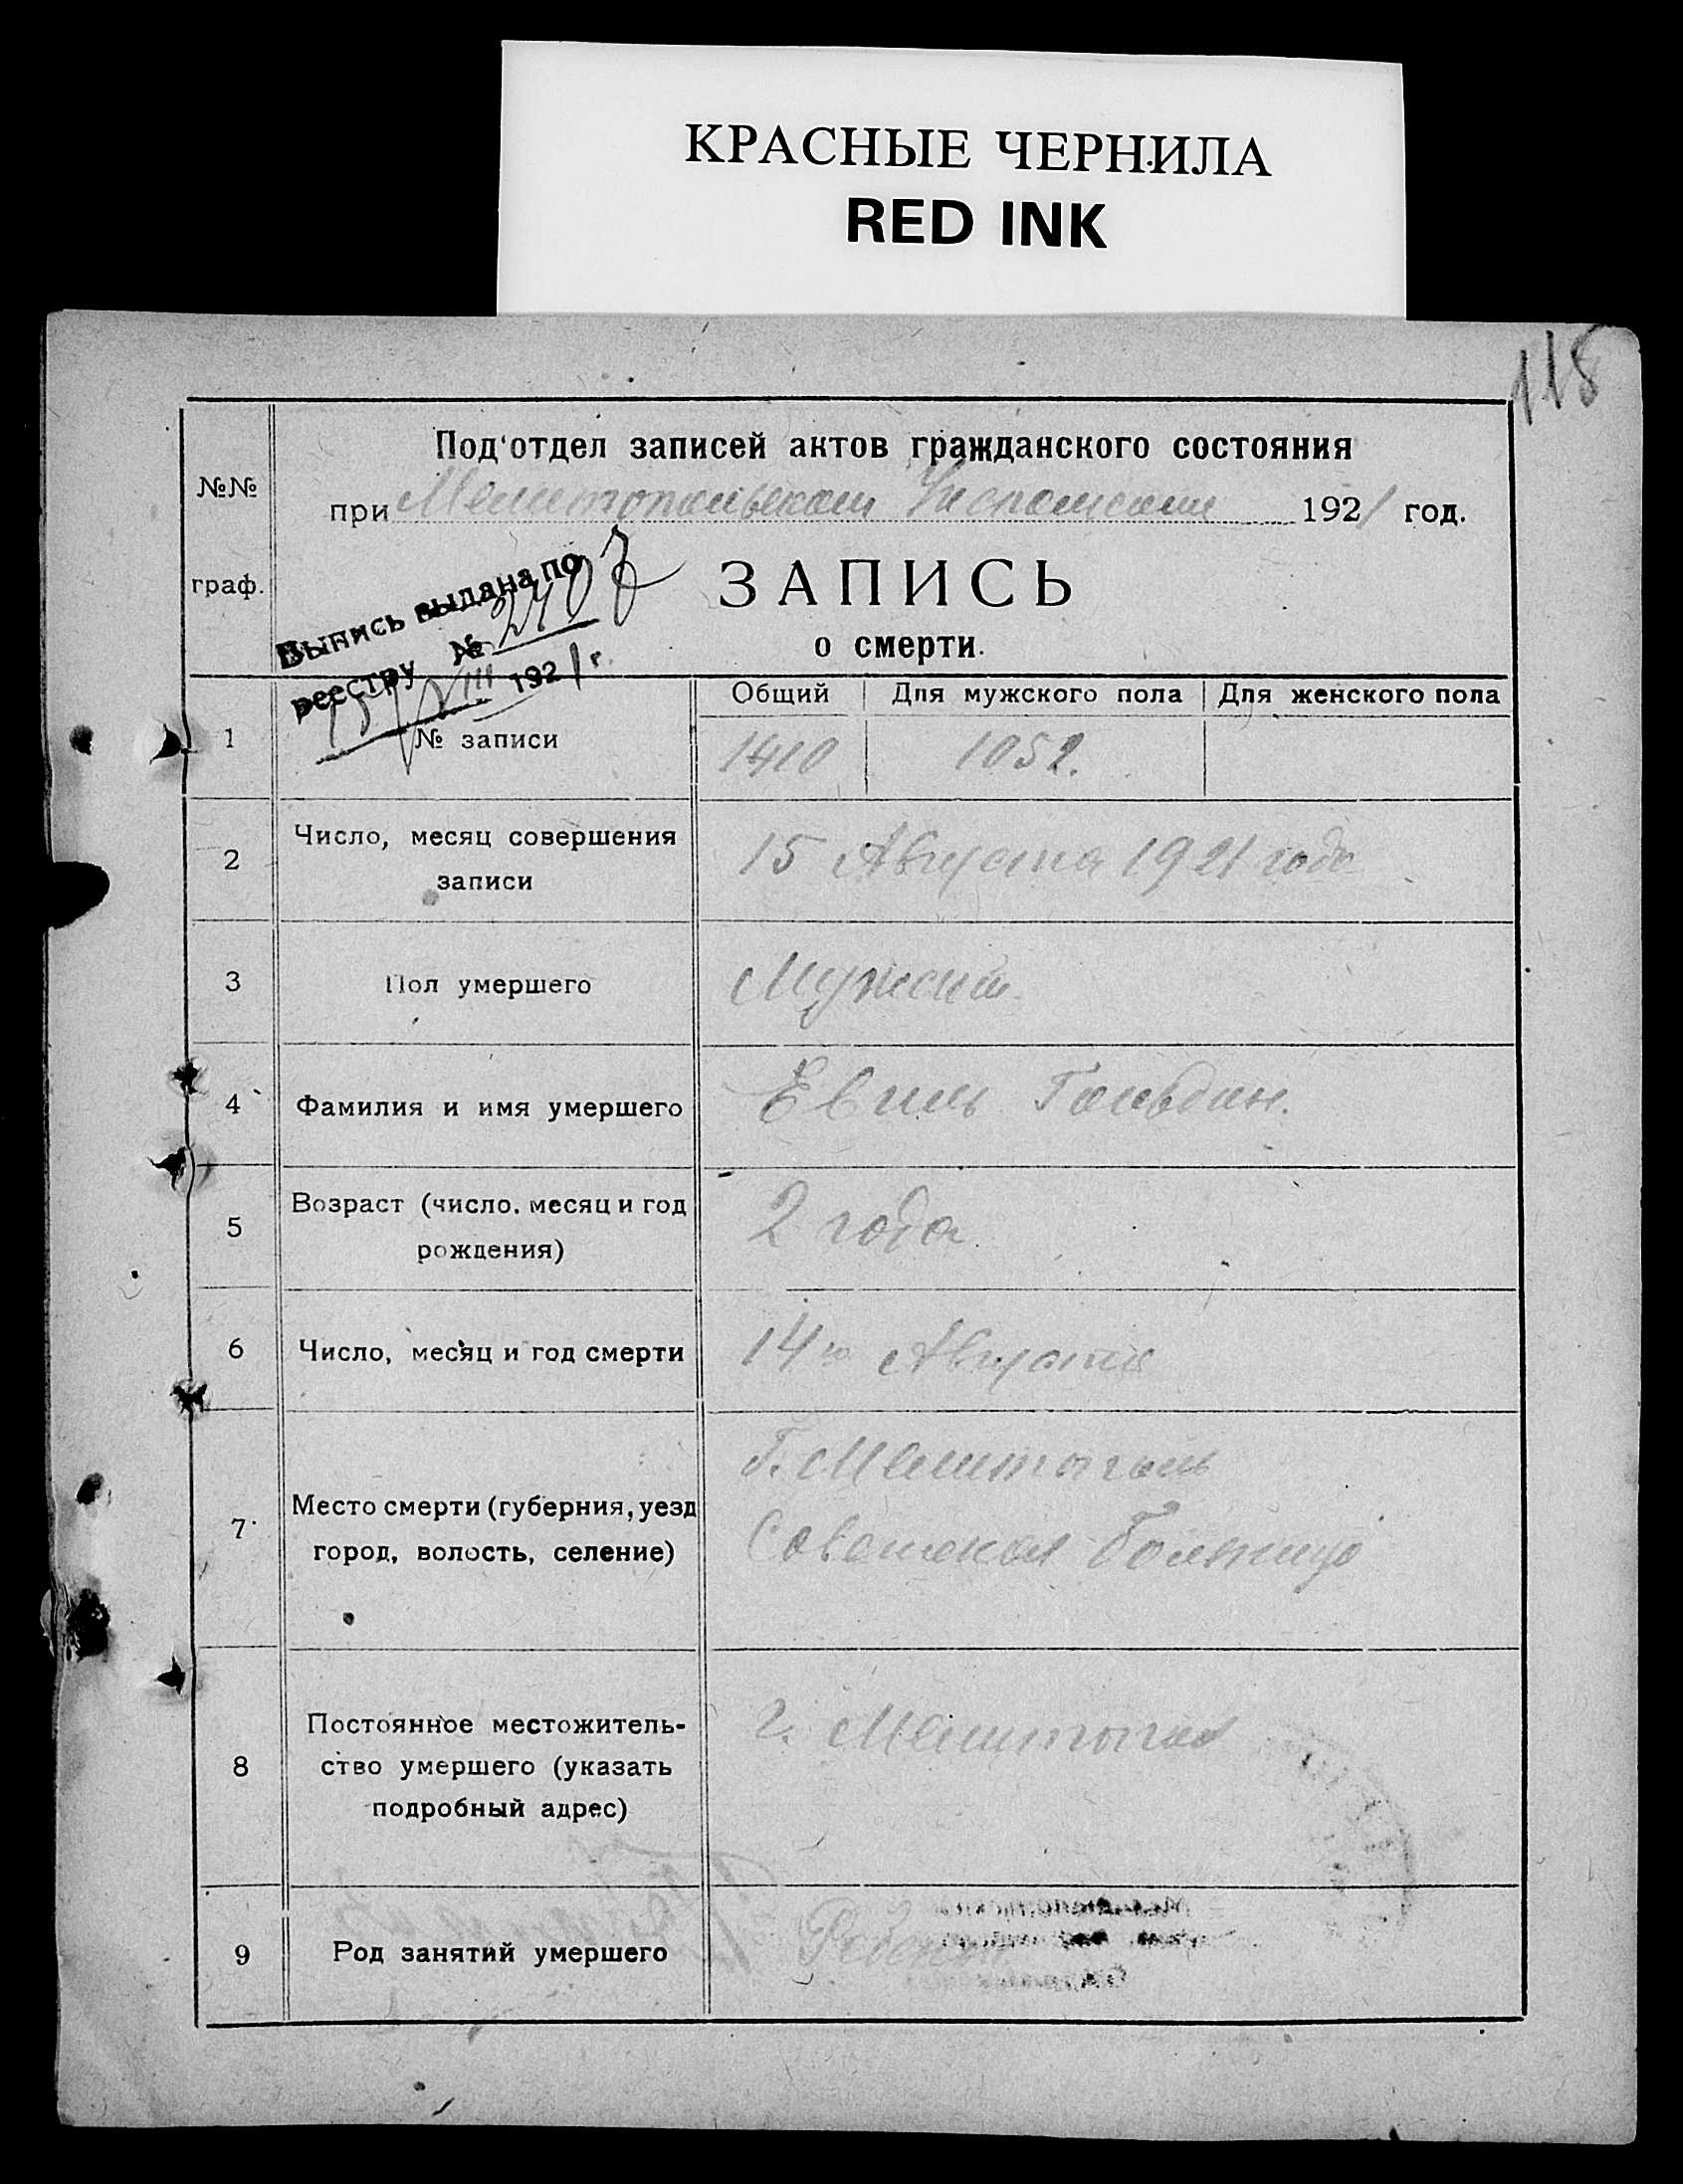 КРАСНЫЕ ЧЕРНИЛА
RED INK
118
Под'отдел записей актов гражданского состояния
№№ граф.
при Мелитопольском 1921 год.
Выпись выдана по
реестру №
15/VIII 1921 г.
ЗАПИСЬ
о смерти.
Общий Для мужского пола Для женского пола
1 № записи 1410 1052.
2 Число, месяц совершения
записи
15 Августа 1921 года
3 Пол умершего Мужской
4 Фамилия и имя умершего Евель Гольдин.
5 Возраст (число, месяц и год
рождения)
2 года
6 Число, месяц и год смерти 14го Августа
7 Место смерти (губерния, уезд
город, волость, селение)
Г. Мелитополь
Советская Больница
8 Постоянное местожитель-
ство умершего (указать
подробный адрес)
г. Мелитополь
9 Род занятий умершего Ребенок